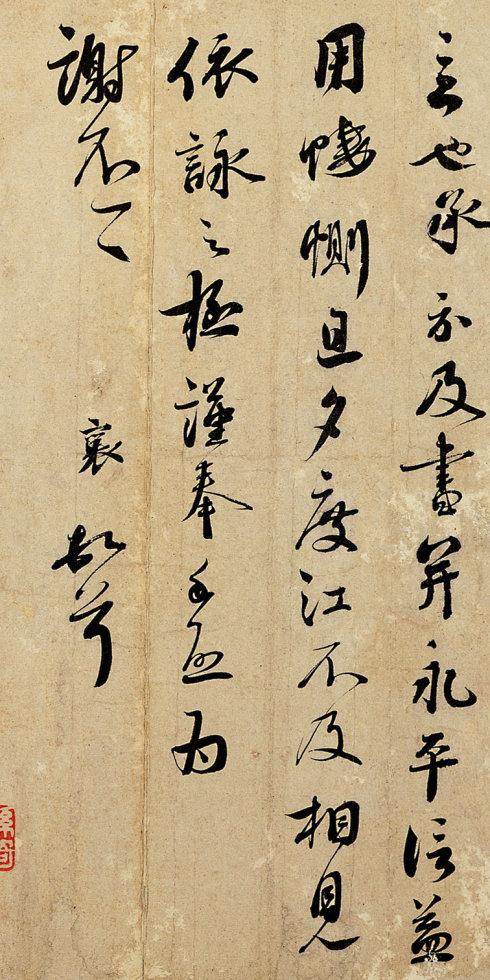 言也承示及書并永平信益
用悽惻旦夕度江不及相見
依詠之極謹奉手啓为
謝不一一　襄頓首